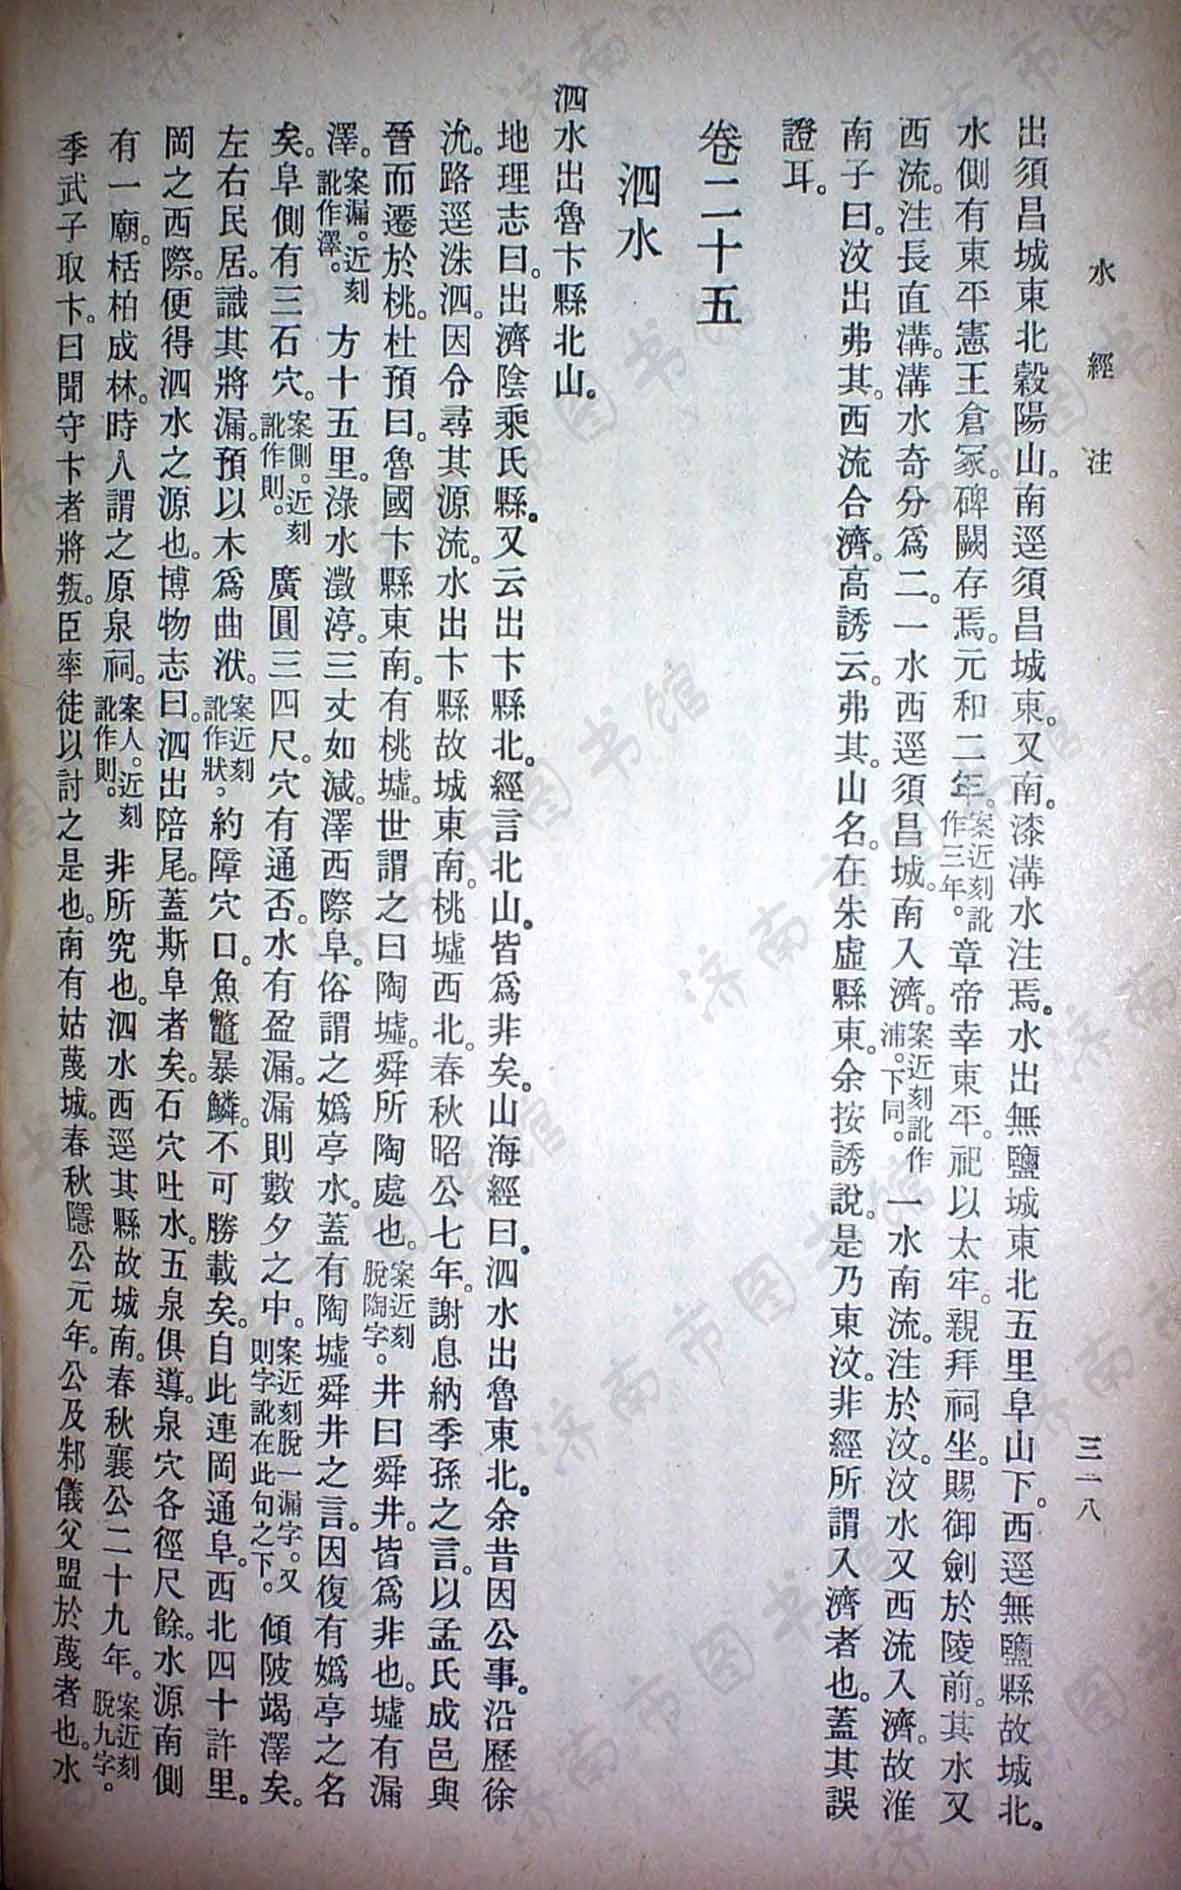 水經注
三一八
出須昌城東北穀陽山。南逕須昌城東。又南。漆溝水注焉。水出無鹽城東北五里阜山下。西逕無鹽縣故城北。
水側有東平憲王倉冢。碑闕存焉。元和二年。案近刻訛作三年。章帝幸東平。祀以太牢。親拜祠坐。賜御劍於陵前。其水又
西流。注長直溝。溝水奇分爲二。一水西逕須昌城。南入濟。案近刻訛作浦。下同。一水南流。注於汶。汶水又西流入濟。故淮
南子曰。汶出弗其。西流合濟。高誘云。弗其。山名。在朱虛縣東。余按誘說。是乃東汶。非經所謂入濟者也。蓋其誤
證耳。
卷二十五
泗水
泗水出魯卞縣北山。
地理志曰。出濟陰乘氏縣。又云出卞縣北。經言北山。皆爲非矣。山海經曰。泗水出魯東北。余昔因公事。沿歷徐
沇。路逕洙泗。因令尋其源流。水出卞縣故城東南。桃墟西北。春秋昭公七年。謝息納季孫之言。以孟氏成邑與
晉而遷於桃。杜預曰。魯國卞縣東南。有桃墟。世謂之曰陶墟。舜所陶處也。案近刻脫陶字。井曰舜井。皆爲非也。墟有漏
澤。案漏。近刻訛作澤。方十五里。淥水澂渟。三丈如減。澤西際阜。俗謂之嬀亭水。蓋有陶墟舜井之言。因復有嬀亭之名
矣。阜側有三石穴。案側。近刻訛作則。廣圓三四尺。穴有通否。水有盈漏。漏則數夕之中。案近刻脫一漏字。又則字訛在此句之下。傾陂竭澤矣。
左右民居。識其將漏。預以木爲曲洑。案近刻訛作狀。約障穴口。魚鼈暴鱗。不可勝載矣。自此連岡通阜。西北四十許里。
岡之西際。便得泗水之源也。博物志曰。泗出陪尾。蓋斯阜者矣。石穴吐水。五泉俱導。泉穴各徑尺餘。水源南側
有一廟。栝柏成林。時人謂之原泉祠。案人。近刻訛作則。非所究也。泗水西逕其縣故城南。春秋襄公二十九年。案近刻脫九字。
季武子取卞。曰聞守卞者將叛。臣率徒以討之是也。南有姑蔑城。春秋隱公元年。公及邾儀父盟於蔑者也。水